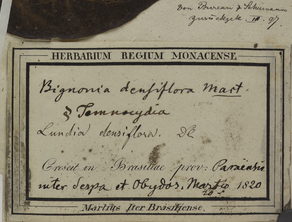 von Bureau & Schumann
zurück
97.
HERBARIUM REGIUM MONACENSE.
Bignonia densiflora Mart.
Lundia densiflora. DC
Crescit in Brasiliae prov. Paraensis
inter Serpa et Obydos. Martio 1820
Martius Iter Brasiliense.